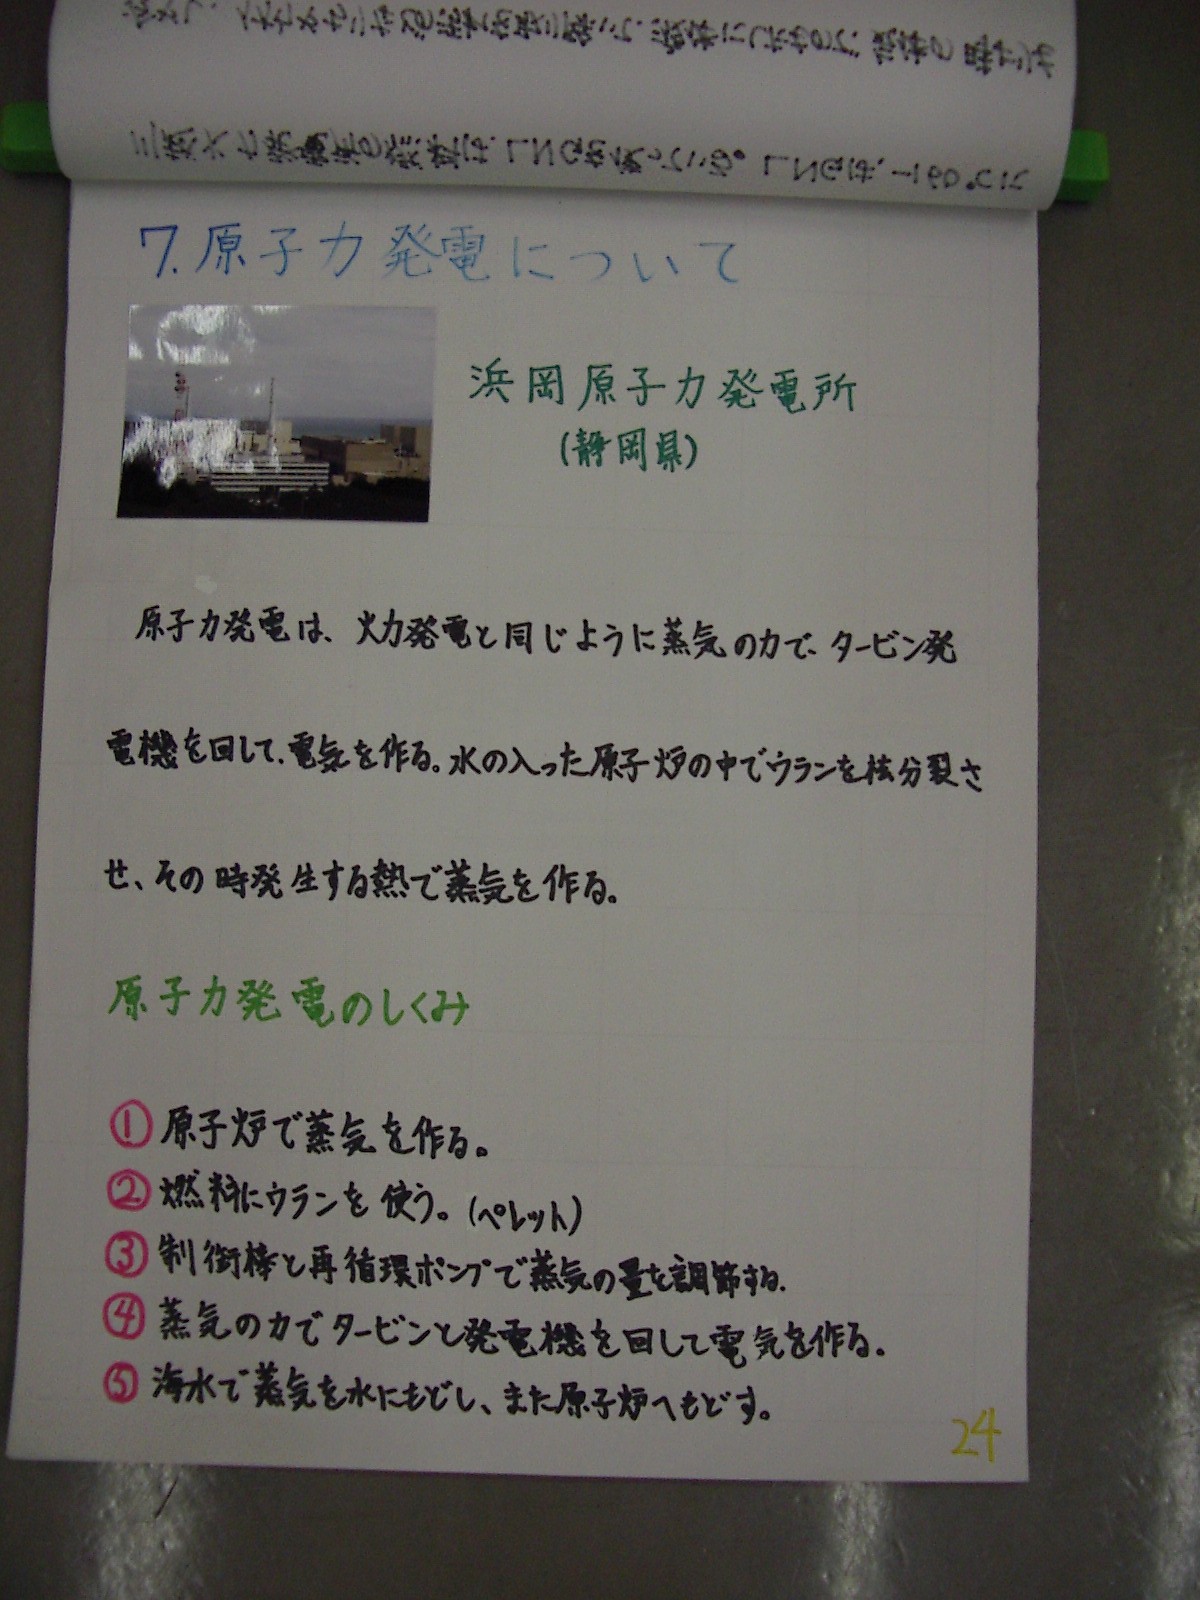 三池火力発電所の燃料は、LNGを使っている。LNGは、-160℃に
7.原子力発電について
浜岡原子力発電所
(静岡県)
原子力発電は、火力発電と同じように蒸気の力で、タービン発
電機を回して、電気を作る。水の入った原子炉の中でウランを核分裂さ
せ、その時発生する熱で蒸気を作る。
原子力発電のしくみ
① 原子炉で蒸気を作る。
② 燃料にウランを使う。(ペレット)
③ 制御棒と再循環ポンプで蒸気の量を調節する。
④ 蒸気の力でタービンと発電機を回して電気を作る。
⑤ 海水で蒸気を水にもどし、また原子炉へもどす。
24